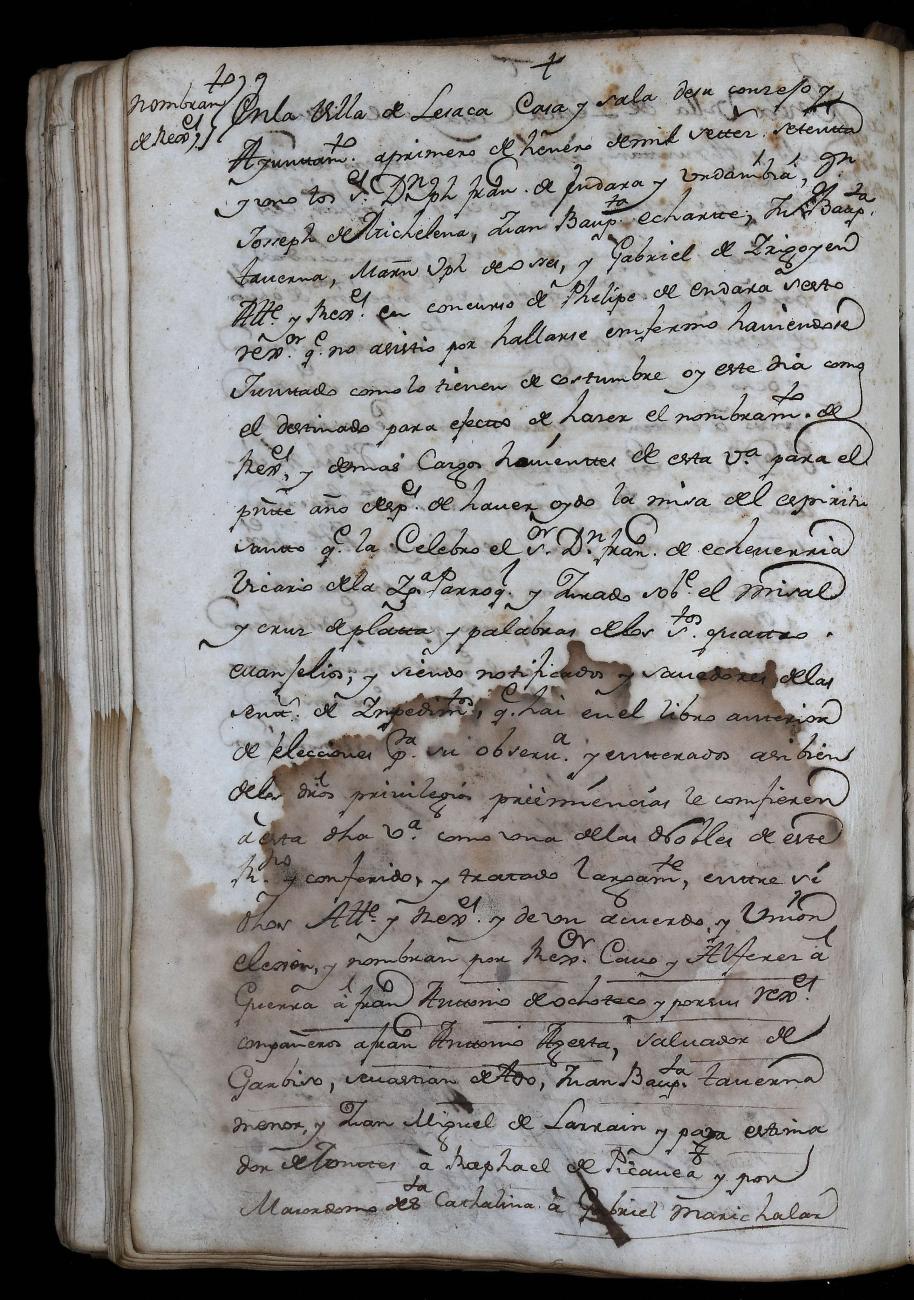 +
Nombram.to
de Rex.es
En la Villa de Lesaca Casa y sala de su congreso y
Ayuntam.to a primero de henero de mil settez. settenta
y uno los S.es D.n Jph fran.co de Endara y Vrdambia, D.n
Joseph de Michelena, Juan Baup.ta echartte, Ju.n Baup.ta
taverna, Martin Jph de Osses, y Gabriel de Irigoyen
Alt.e y Rex.es en concurso de Phelipe de endara sesto
rex.or q.e no asistio por hallarse enfermo haviendose
Junttado como lo tienen de costumbre oy este dia como
el destinado para efecto de hazer el nombram.to de
Rex.es, y demas Cargos havienttes de esta V.a para el
pñtte año desp.es de haver oydo la misa del espiritu
santto q.e la Celebro el S.or D.n fran.co de echeverria
Vicario de la Ig.a Parroq.l y Jurado sob.e el misal
y cruz de platta y palabras de los S.tos quattro
evanjelios, y siendo notificados y savedores de las
sent.s de Inpedim.tos, q.e hai en el libro anterior
de elecciones p.ra su observ.a y entterados asi bien
de los dros privilegios preeminencias le confieren
a esta dha V.a como vna de las Nobles de este
R.no y conferido, y trattado largam.te, enttre si
dhos Alt.e y Rex.es y de vn acuerdo, y Union
elexien, y nombran por Rex.or Cavo y Alferez a
Guerra à fran.co Anttonio de ochoteco y por sus rex.es
compañeros a fran.co Anttonio Agesta, salvador de
Garbiso, sevastian de Ado, Juan Baup.ta taverna
menor, y Juan Miguel de Larrain y para estima
dor de Montes à Raphael de Picavea y por
Maiordomo de S.ta Cathalina à Gabriel marichalar